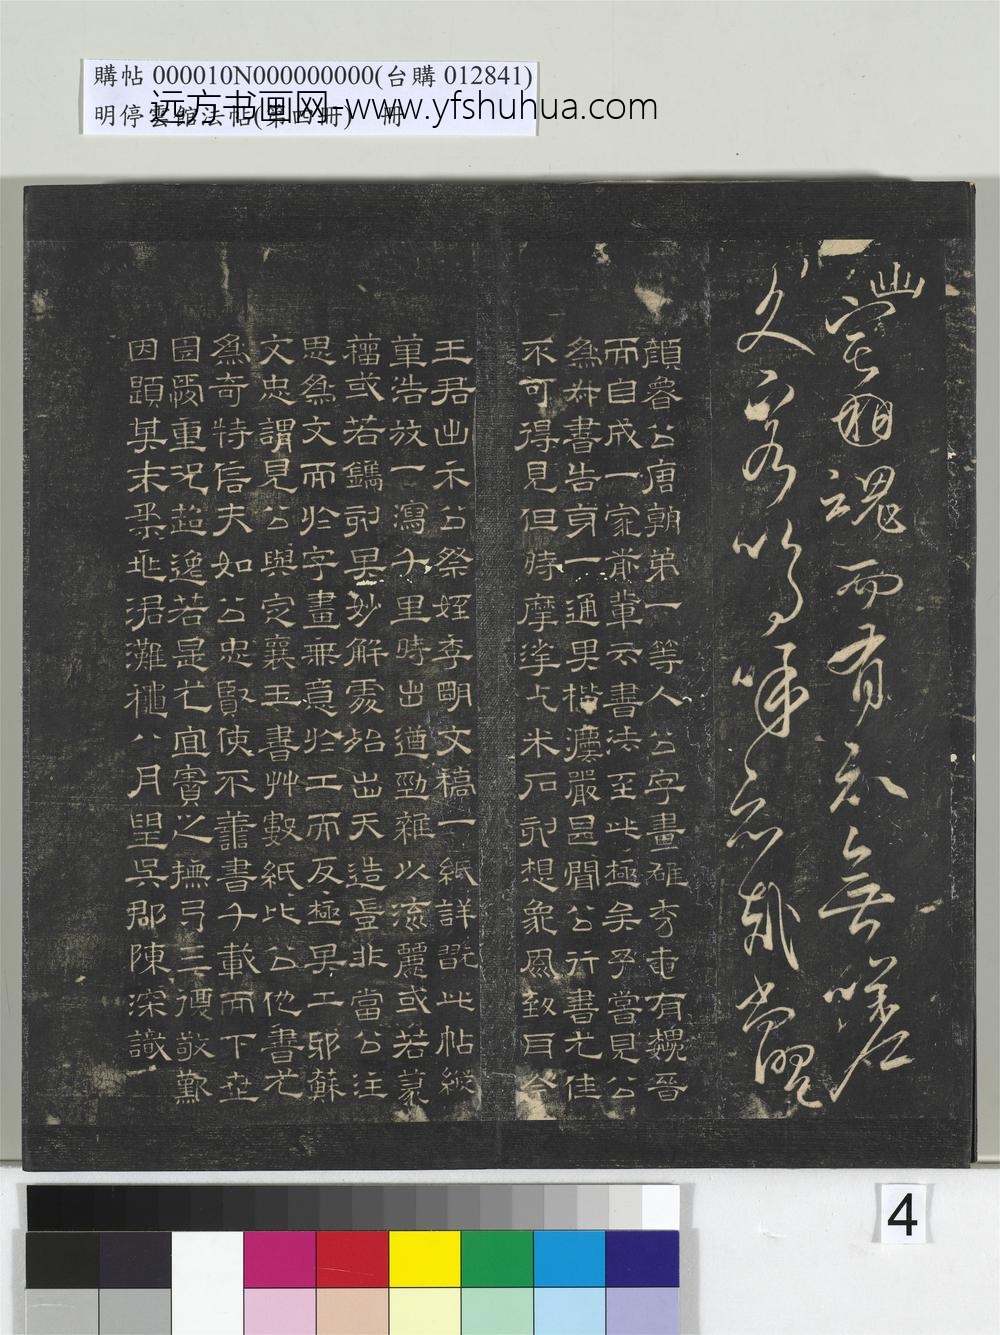 購帖 000010N000000000(台購 012841)
明停雲館法帖(第四冊) 冊
远方书画网-www.yfshuhua.com
幽宅相魂而有知無嗟
久客嗚呼哀哉尚饗
顏魯公唐朝第一等人公字畫雄秀奄有魏晉
而自成一家前輩云書法至此極矣予嘗見公
為書告身一通楷嚴且聞公行書尤佳
不可得見但時摩挲木石刻想象風致耳今
王君出示公祭姪季明文稿一紙詳翫此帖縱
筆浩放一瀉千里時出遒勁雜以流麗或若篆
籀或若鐫刻其妙解處殆出天造豈非當公注
思為文而於字畫無意於工而反極其工邪蘇
文忠謂見公與定襄王書艸數紙比公他書尤
為奇特信夫如公忠賢使不善書千載而下世
固愛重況超逸若是尤宜寶之撫弓三復敬歎
因題其末柔兆涒灘八月望吳郡陳深識
4